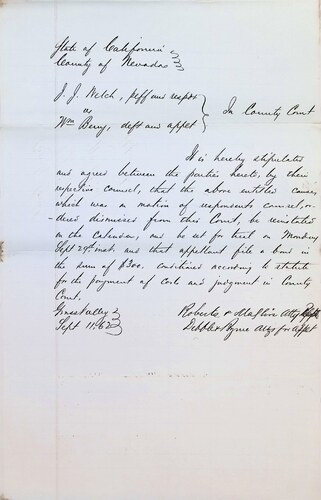 State of California
County of Nevada } ss
J. J. Welch, plff and respt
vs
Wm Berry, deft and applt
In County Court
It is hereby stipulated
and agreed between the parties hereto, by their
respective counsel, that the above entitled cause,
which was on motion of respondents counsel, or-
-dered dismissed from this Court, be reinstated
on the Calendar, and be set for trial on Monday
Sept 29th inst. and that appellant file a bond in
the sum of $300. conditioned according to statute
for the payment of costs and judgment in County
Court.
Grass Valley
Sept 11. 62
Roberts & Atty Respt
Dibble & Byrne Attys for Applt